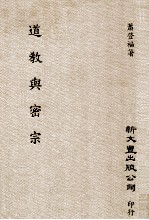 蕭登福著
道教與密宗
新文豐出版公司 印行